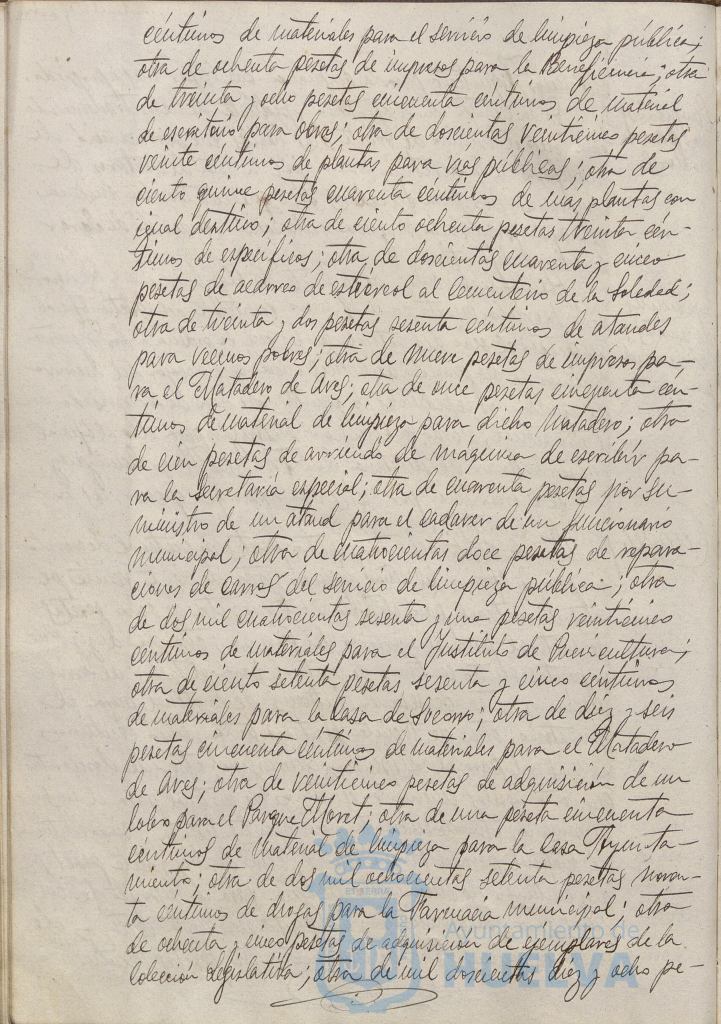 céntimos de materiales para el servicio de limpieza pública;
otra de ochenta pesetas de impresos para la Beneficencia; otra
de treinta y ocho pesetas cincuenta céntimos de material
de escritorio para obras; otra de doscientas veinticinco pesetas
veinte céntimos de plantas para vías públicas; otra de
ciento quince pesetas cuarenta céntimos de más plantas con
igual destino; otra de ciento ochenta pesetas treinta cén-
timos de específicos; otra de doscientas cuarenta y cinco
pesetas de acarreo de estiércol al Cementerio de la Soledad;
otra de treinta y dos pesetas sesenta céntimos de ataudes
para vecinos pobres; otra de nueve pesetas de impresos pa-
ra el Matadero de Aves; otra de once pesetas cincuenta cén-
timos de material de limpieza para dicho Matadero; otra
de cien pesetas de arriendo de máquina de escribir pa-
ra la secretaría especial; otra de cuarenta pesetas por su-
ministro de un ataud para el cadaver de un funcionario
municipal; otra de cuatrocientas doce pesetas de repara-
ciones de carros del servicio de limpieza pública; otra
de dos mil cuatrocientas sesenta y una pesetas veinticinco
céntimos de materiales para el Instituto de Puericultura;
otra de ciento setenta pesetas sesenta y cinco céntimos
de materiales para la Casa de Socorro; otra de diez y seis
pesetas cincuenta céntimos de materiales para el Matadero
de Aves; otra de veinticinco pesetas de adquisición de un
lobo para el Parque Moret; otra de una peseta cincuenta
céntimos de material de limpieza para la Casa Ayunta-
miento; otra de dos mil ochocientas setenta pesetas noven-
ta céntimos de drogas para la Farmacia municipal; otra
de ochenta y cinco pesetas de adquisición de ejemplares de la
Colección Legislativa; otra de mil doscientas diez y ocho pe-
Ayuntamiento de
HUELVA